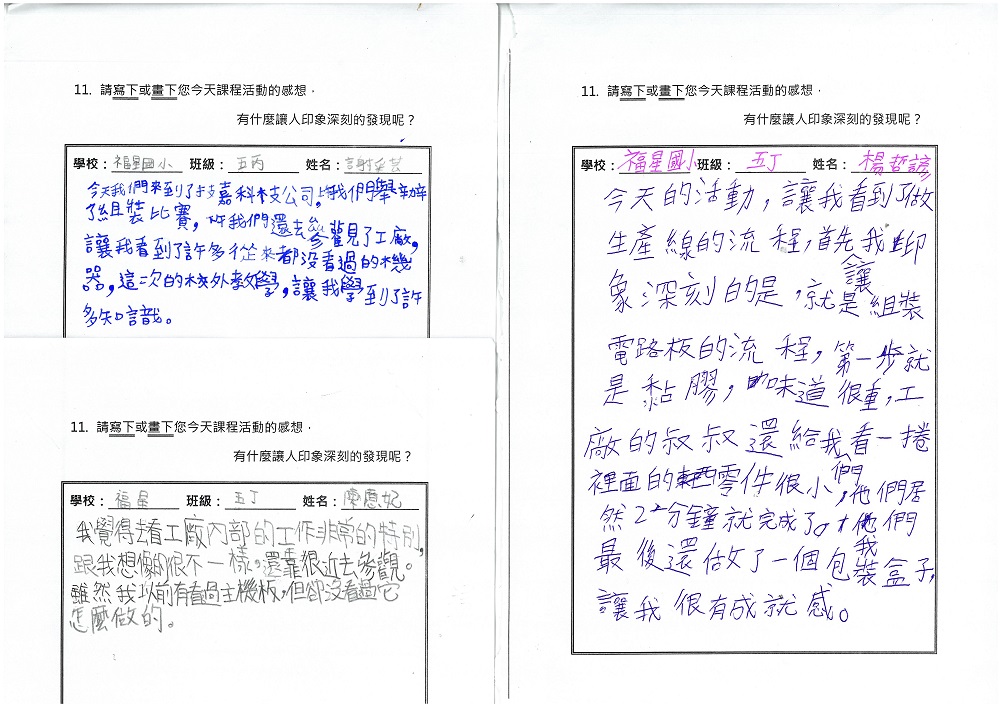 11. 請寫下或畫下您今天課程活動的感想，
有什麼讓人印象深刻的發現呢？
學校：福星國小 班級：五丙 姓名：謝采芸
今天我們來到了技嘉科技公司，我們舉辦
了組裝比賽，我們還去參觀了工廠，
讓我看到了許多從來都沒看過的機
器，這一次的校外教學，讓我學到了許
多知識。
11. 請寫下或畫下您今天課程活動的感想，
有什麼讓人印象深刻的發現呢？
學校：福星 班級：五丁 姓名：陳恩妃
我覺得去看工廠內部的工作非常的特別，
跟我想像的很不一樣。還靠很近去參觀。
雖然我以前有看過主機板，但卻沒看過它
怎麼做的。
11. 請寫下或畫下您今天課程活動的感想，
有什麼讓人印象深刻的發現呢？
學校：福星國小 班級：五丁 姓名：楊哲諺
今天的活動，讓我看到了做
生產線的流程，首先讓我印
象深刻的是，就是組裝
電路板的流程，第一步就
是黏膠，味道很重，工
廠的叔叔還給我們看一捲
裡面的零件很小，他們居
然2分鐘就完成了。他們
最後還做了一個包裝盒子，
讓我很有成就感。